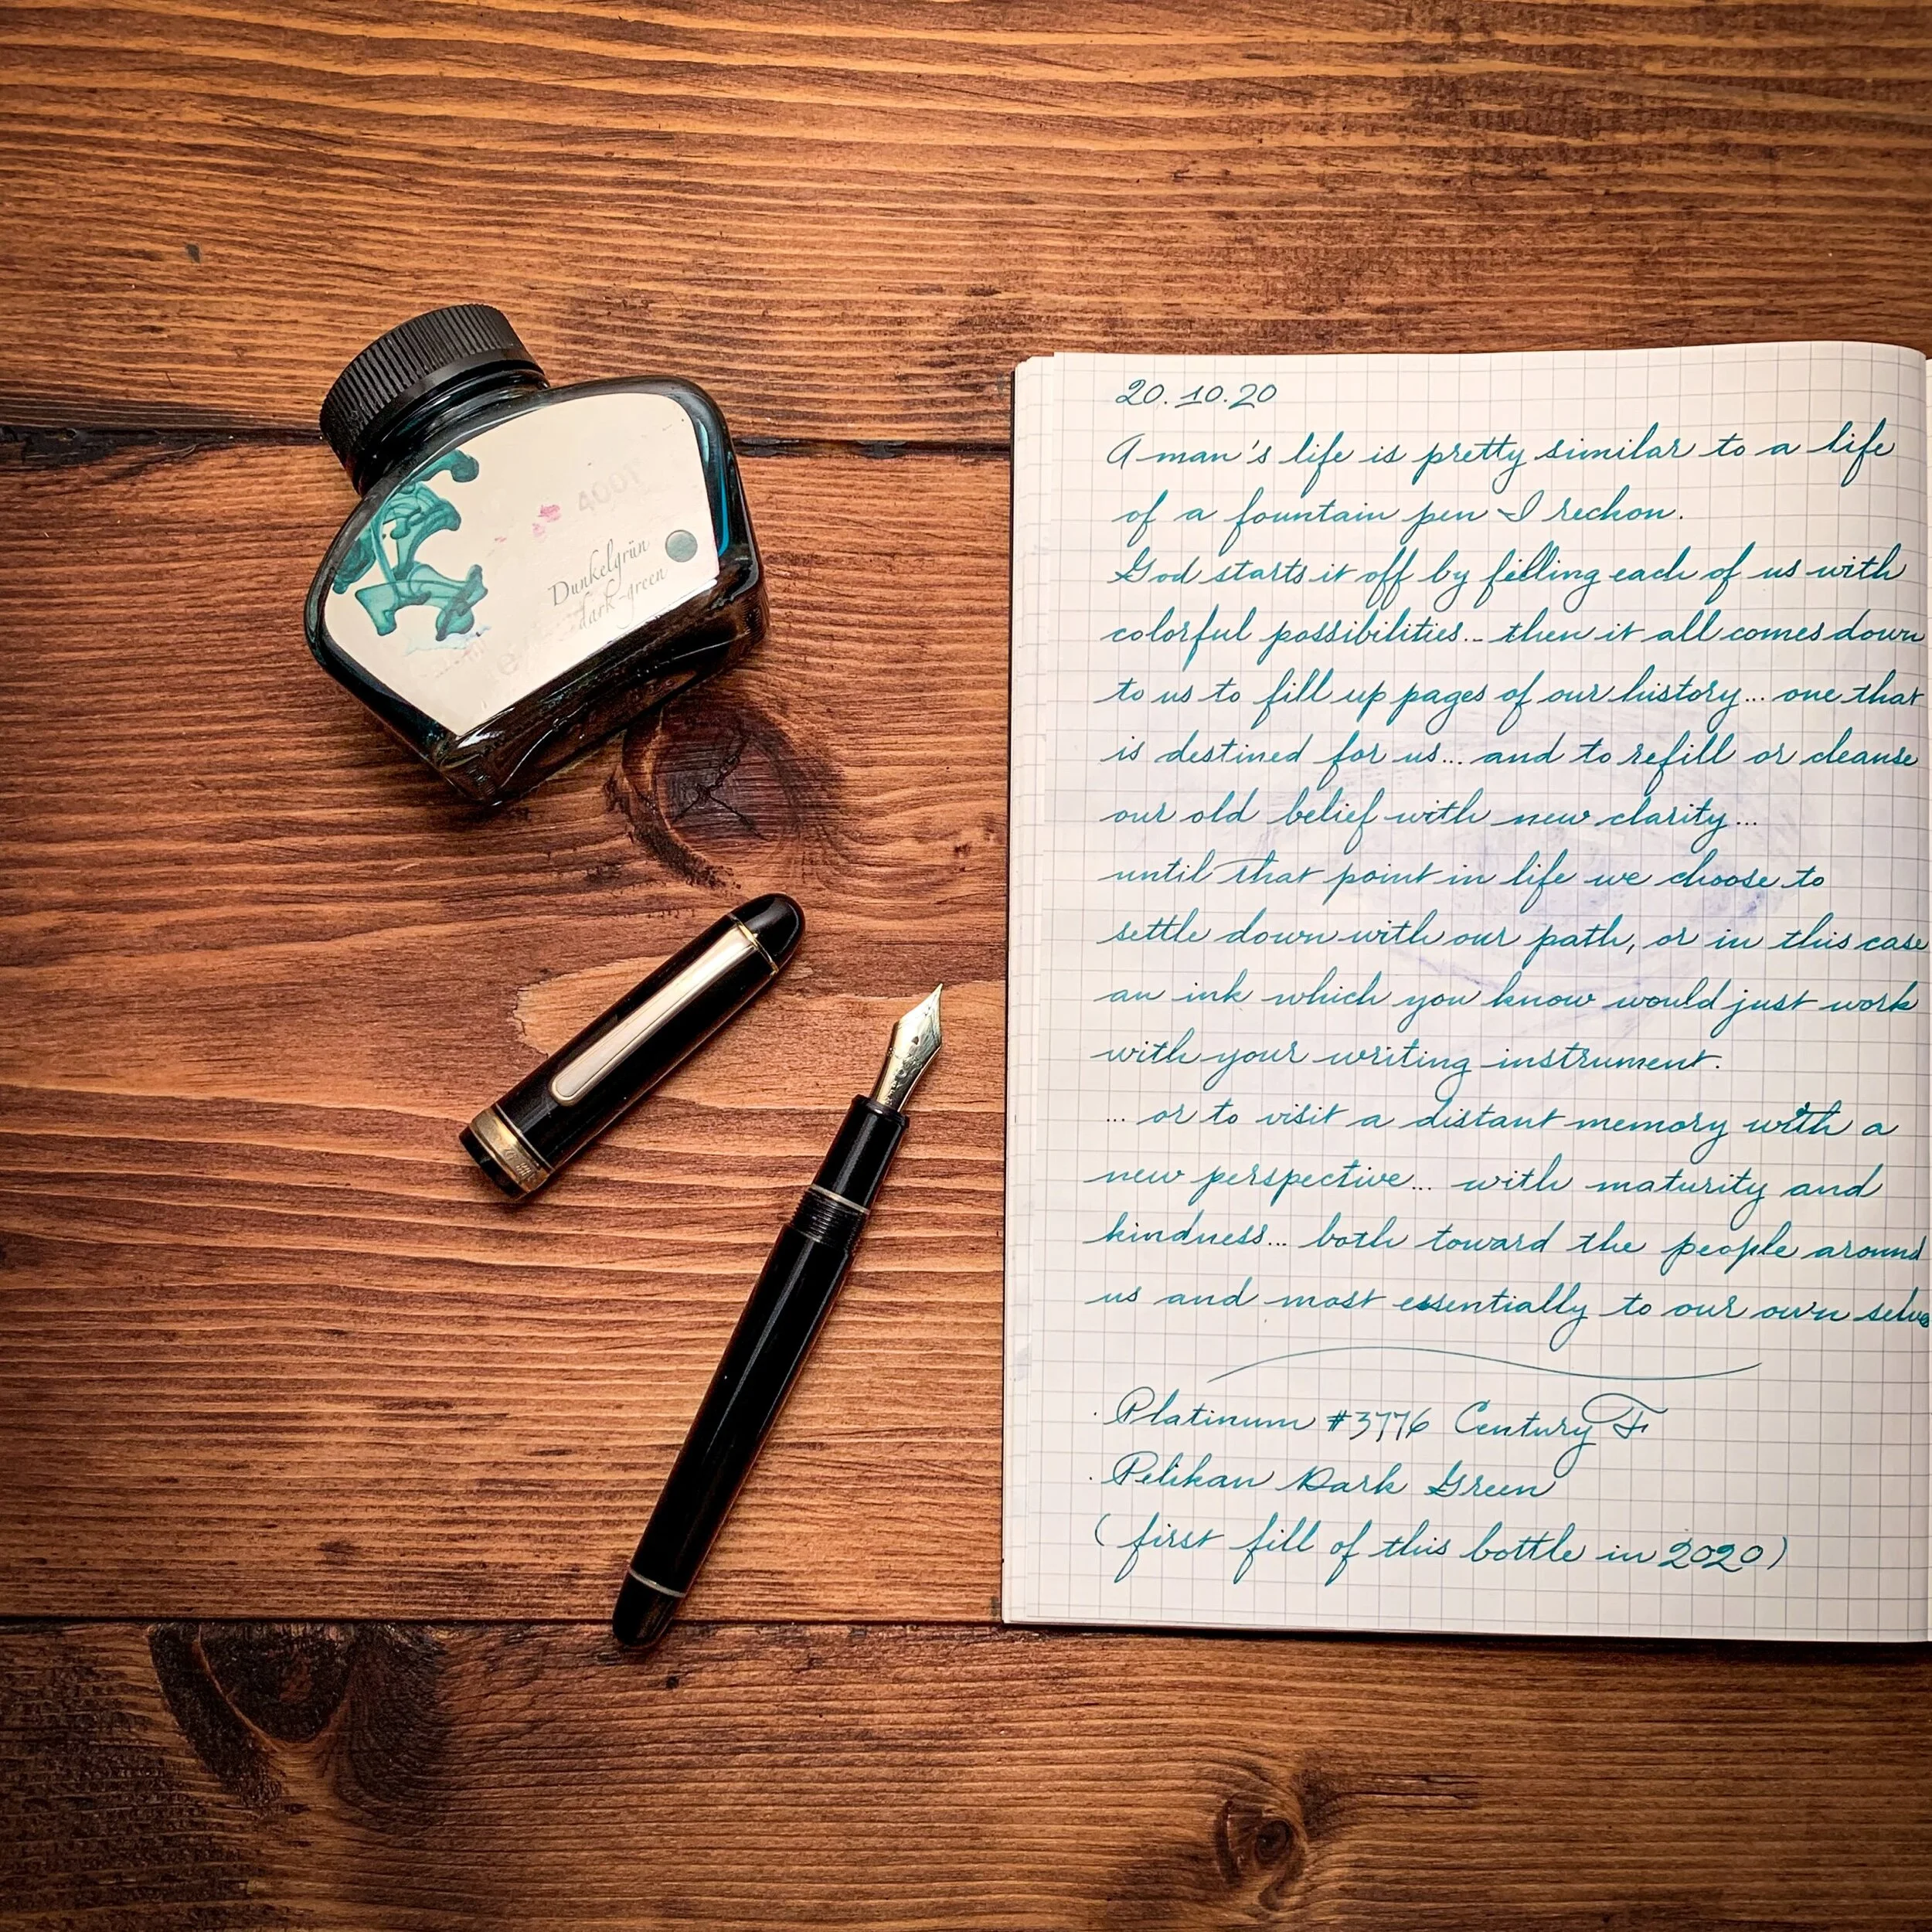 4001
Dunkelgrün
dark-green
20.10.20
A man's life is pretty similar to a life
of a fountain pen I reckon.
God starts it off by filling each of us with
colorful possibilities... then it all comes down
to us to fill up pages of our history... one that
is destined for us... and to refill or cleanse
our old belief with new clarity...
until that point in life we choose to
settle down with our path, or in this case
an ink which you know would just work
with your writing instrument.
... or to visit a distant memory with a
new perspective... with maturity and
kindness... both toward the people around
us and most essentially to our own selves
· Platinum #3776 Century F
· Pelikan Dark Green
(first fill of this bottle in 2020)